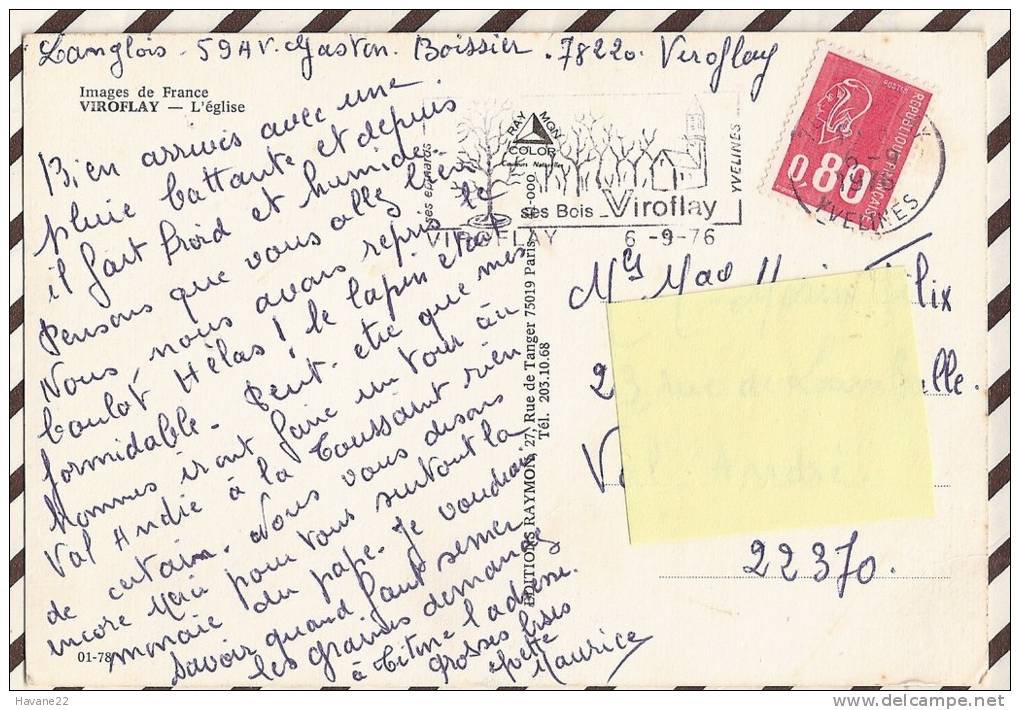 Langlois - 59 AV. Gaston. Boissier . 78220. Viroflay
Images de France
VIROFLAY — L'église
Bien arrivés avec une
pluie battante et depuis
il fait froid et humide.
Pensons que vous allez bien
Nous, nous avons repris le
boulot Hélas ! le lapin était
formidable. Peut-etre que mes
hommes iront faire un tour au
Val André à la Toussaint rien
de certain. Nous vous disons
encore merci pour tous surtout la
monaie du pape. Je voudrai
savoir quand faut semer
les graines demandez
à Titine l'adresse.
grosses bises
Yvette
Maurice
01-78
EDITIONS RAYMON, 27, Rue de Tanger 75019 Paris
Tél. 203.10.68
RAYMON
COLOR
Couleurs Naturelles
ses Bois Viroflay
YVELINES
VIROFLAY 6 -9-76
REPUBLIQUE FRANÇAISE
0,80
1976
YVELINES
Mr Mad
lix
2
alle.
Val André
22370.
Havane22
delcampe.net